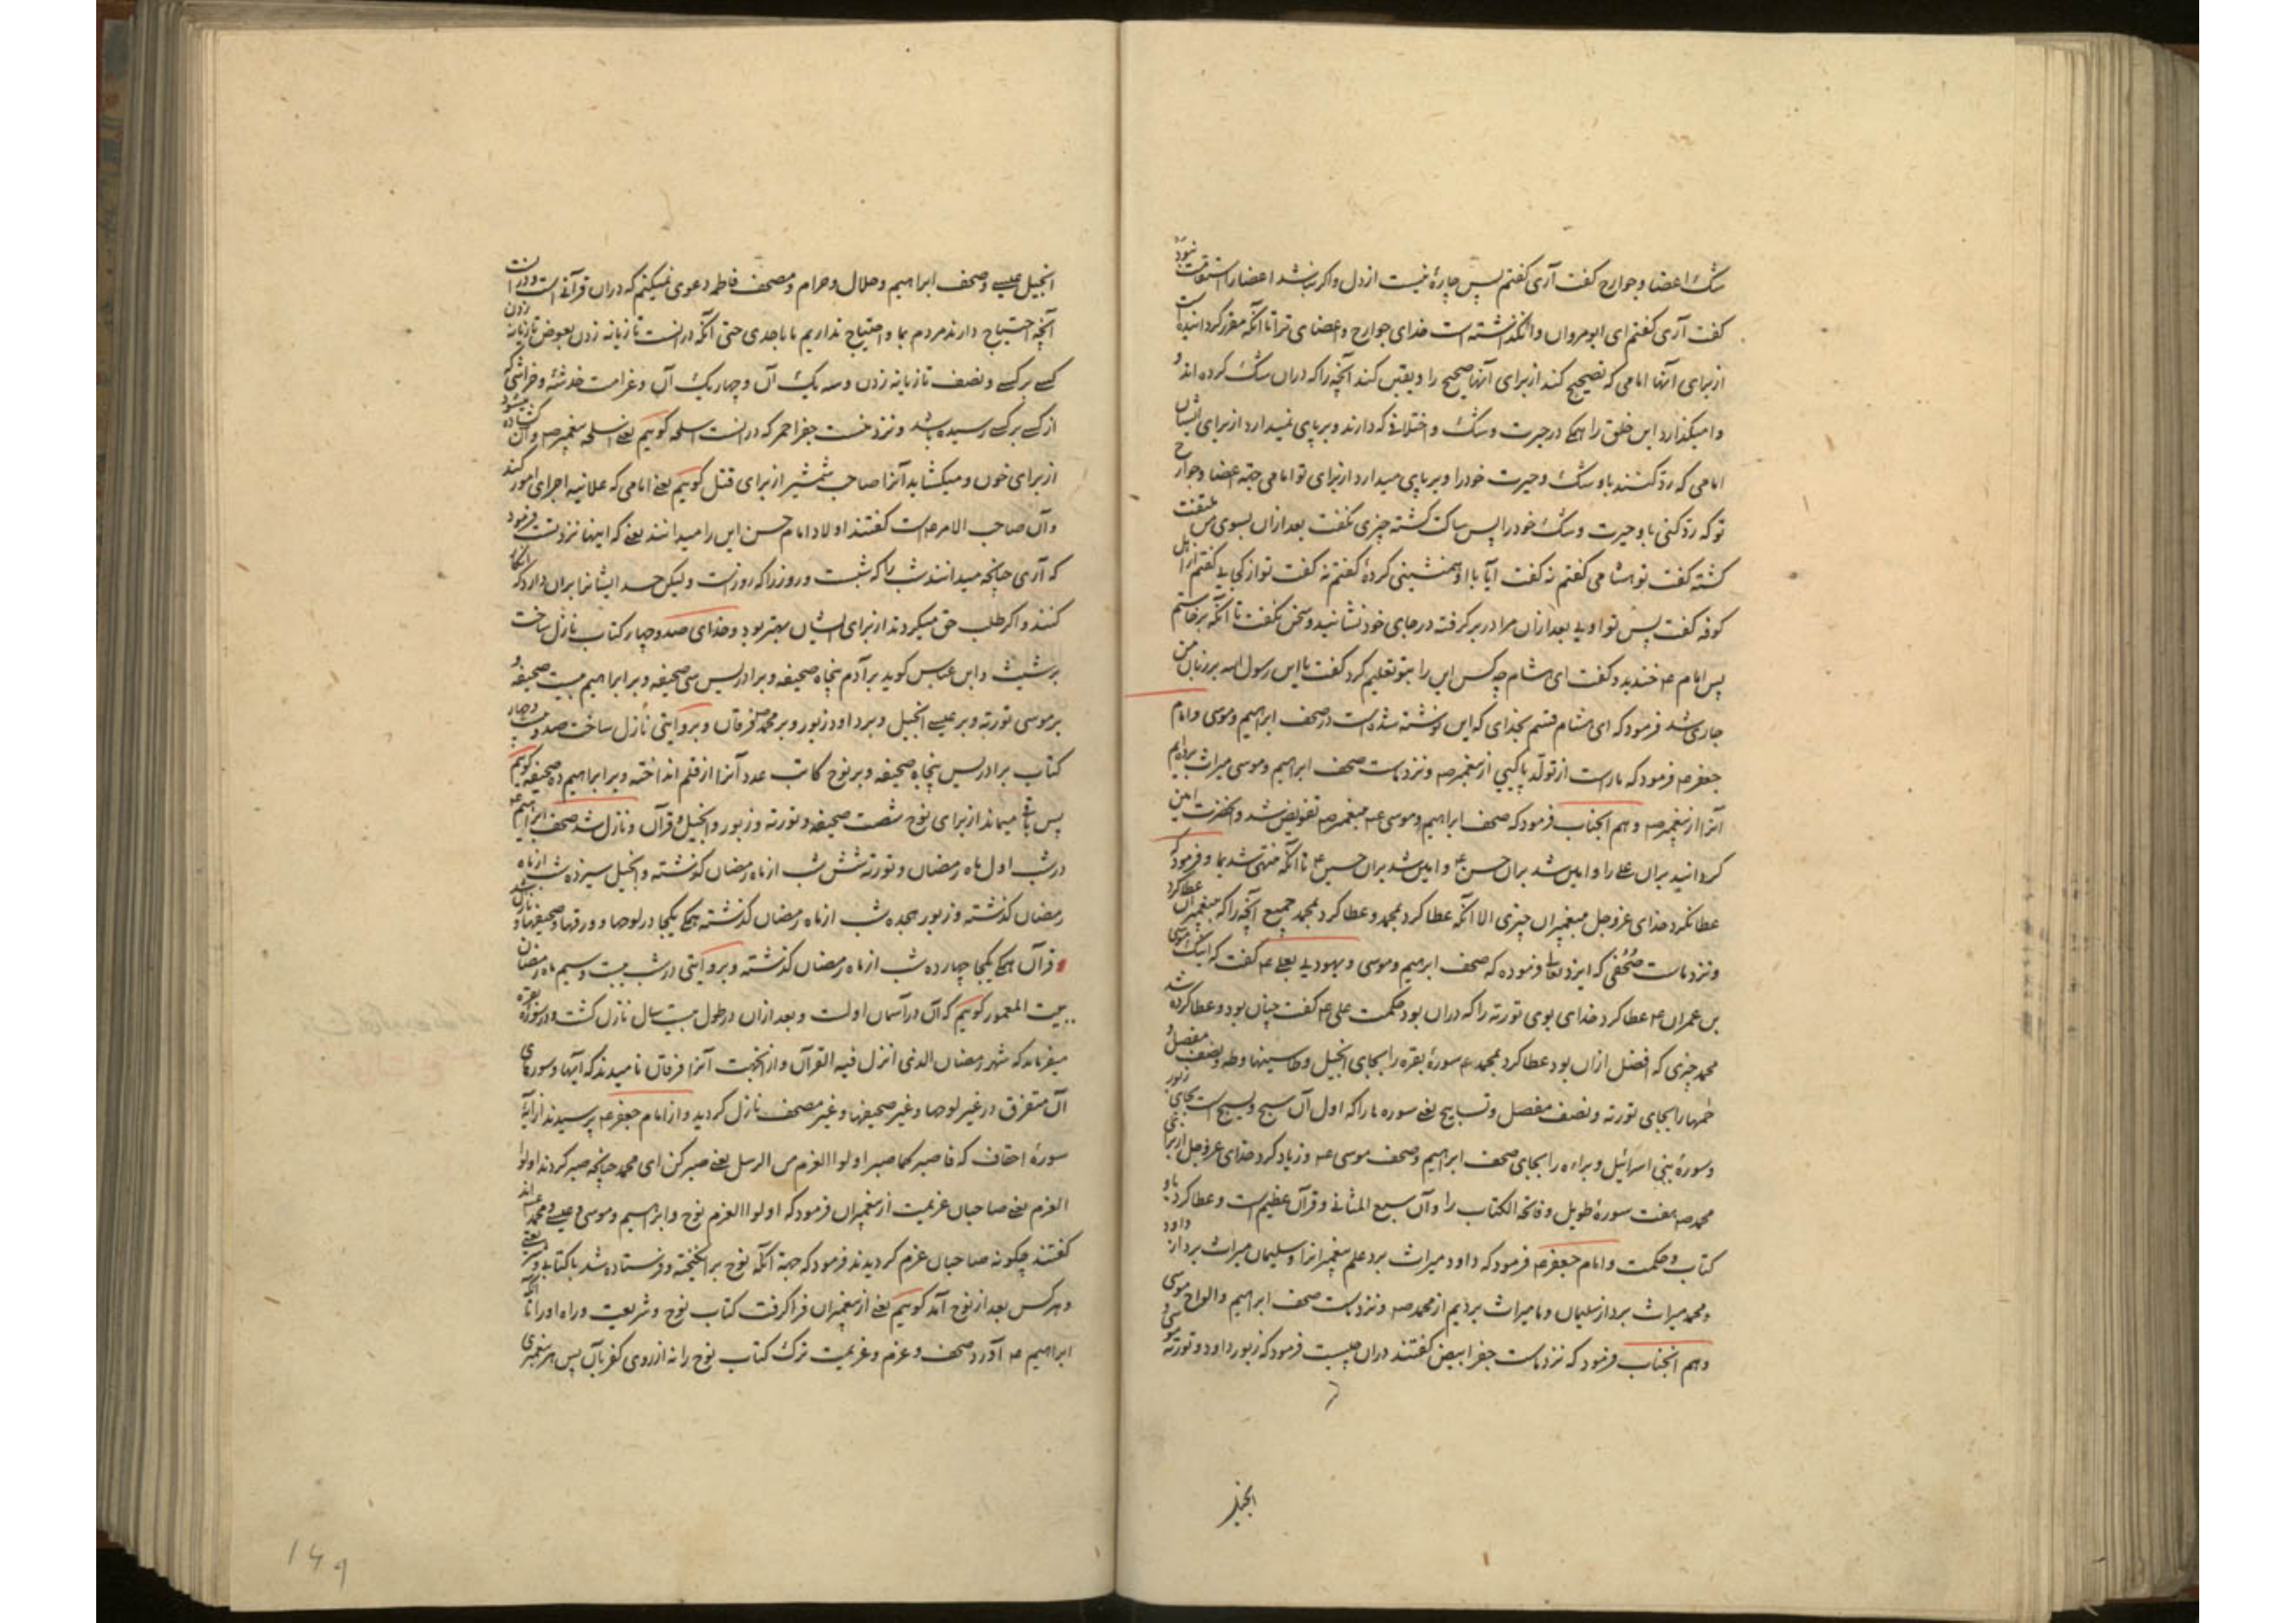 شک اعضا و جوارح گفت آری گفتم پس چارهٔ نیست از دل و اگر نباشد اعضا را استقامت نبود
گفت آری گفتم ای ابو مروان وانگذاشته است خدای جوارح و اعضای ترا تا آنکه مقرر گردانیده است
از برای آنها امامی که تصحیح کند از برای آنها صحیح را و یقین کند آنچه را که دران شک کرده اند و
وامیگذارد این خلق را همگی در حیرت و شک و اختلافی که دارند و برپای نمیدارد از برای ایشان
امامی که رد کنند باو شک و حیرت خود را و برپای میدارد از برای تو امامی جهة اعضا و جوارح
تو که رد کنی باو حیرت و شک خود را پس ساکت گشته چیزی نگفت بعد ازان بسوی من ملتفت
گشته گفت تو هشامی گفتم نه گفت آیا با او همنشینی کردهٔ گفتم نه گفت تو از کجایی گفتم از اهل
کوفه گفت پس تو اویی بعد ازان مرا در بر گرفته در جای خود نشانید و سخن نگفت تا آنکه برخاستم
پس امام عه خندید و گفت ای هشام چه کس این را بتو تعلیم کرد گفت یا ابن رسول الله بر زبان من
جاری شد فرمود که ای هشام قسم بخدای که این نوشته شده است در صحف ابراهیم و موسی و امام
جعفر عه فرمود که ... از تولد پاکیی از پیغمبر صه و نزد ماست صحف ابراهیم و موسی میراث بردایم
آنرا از پیغمبر صه و هم آنجناب فرمود که صحف ابراهیم و موسی عه بپیغمبر صه تفویض شد و آنحضرت امین
گردانید بران علی را و امین شد بران حسن ع و امین شد بران حسین ع تا آنکه منتهی شد بما و فرمود که
عطا نکرد خدای عز و جل بپیغمبران چیزی الا آنکه عطا کرد بمحمد و عطا کرد بمحمد جمیع آنچه را که بپیغمبران عطا کرد
و نزد ماست صحفی که ایزد تعالی فرموده که صحف ابراهیم و موسی و یهودیی بعلی عه گفت که اینک موسی
بن عمران عه عطا کرد خدای بوی توریة را که دران بود حکمت علی عه گفت چنان بود و عطا کرده شد
محمد چیزی که افضل ازان بود عطا کرد بمحمد عه سورهٔ بقره را بجای انجیل و طاسینها و طه و نصف مفصل و
حمیها را بجای توریة و نصف مفصل و تسابیح یعنی سوره ها را که اول آن سبح و یسبح است بجای زبور
و سورهٔ بنی اسرائیل و براءه را بجای صحف ابراهیم و صحف موسی عه و زیاد کرد خدای عز و جل از برای
محمد صه هفت سورهٔ طویل و فاتحة الکتاب را و آن سبع المثانی و قرآن عظیم است و عطا کرد باو
کتاب و حکمت و امام جعفر عه فرمود که داود میراث برد علم پیغمبرانرا و سلیمان میراث برد از داود
و محمد میراث برد از سلیمان و ما میراث بردیم از محمد صه و نزد ماست صحف ابراهیم و الواح موسی
و هم آنجناب فرمود که نزد ماست جفر ابیض گفتند دران چیست فرمود که زبور داود و توریة موسی و
انجیل
انجیل عیسی و صحف ابراهیم و حلال و حرام و مصحف فاطمه دعوی نمیکنم که دران قرآن است و درانست
آنچه احتیاج دارند مردم بما و احتیاج نداریم ما باحدی حتی آنکه درانست تازیانه زدن بعوض تازیانه زدن
کسی بر کسی و نصف تازیانه زدن و سه یک آن و چهار یک آن و غرامت خدشهٔ و خراشی که
از کسی بر کسی رسیده باشد و نزد منست جفر احمر که درانست اسلحه گوییم یعنی اسلحه پیغمبر صه و آن گشاده میشود
از برای خون و میگشاید آنرا صاحب شمشیر از برای قتل گوییم یعنی امامی که علانیه اجرای امور کند
و آن صاحب الامر عه است گفتند اولاد امام حسن این را میدانند یعنی که اینها نزد تست فرمود
که آری چنانچه میدانند شب را که شبست و روز را که روزست و لیکن حسد ایشانرا بران دارد که انکار
کنند و اگر طلب حق میکردند از برای ایشان بهتر بود و خدای صد و چهار کتاب نازل ساخت
بر شیث و ابن عباس گوید بر آدم پنجاه صحیفه و بر ادریس سی صحیفه و بر ابراهیم بیست صحیفه و
بر موسی توریة و بر عیسی انجیل و بر داود زبور و بر محمد صه فرقان و بروایتی نازل ساخت صد و بیست و چهار
کتاب بر ادریس پنجاه صحیفه و بر نوح کاتب عدد آنرا از قلم انداخته و بر ابراهیم ده صحیفه گوییم
پس باقی میماند از برای نوح شصت صحیفه و توریة و زبور و انجیل و قرآن و نازل شد صحف ابراهیم عه
در شب اول ماه رمضان و توریة شش شب از ماه رمضان گذشته و انجیل سیزده شب از ماه
رمضان گذشته و زبور هجده شب از ماه رمضان گذشته همگی یکجا در لوحها و ورقها و صحیفها نازل شد و
قرآن همگی یکجا چهارده شب از ماه رمضان گذشته و بروایتی در شب بیست و سیم ماه رمضان
ببیت المعمور گوییم که آن در آسمان اولست و بعد ازان در طول بیست سال نازل گشت و در سورهٔ بقره
میفرماید که شهر رمضان الذی انزل فیه القرآن و از اینجهت آنرا فرقان نامیدند که آیها و سورهای
آن متفرق در غیر لوحها و غیر صحیفها و غیر مصحف نازل گردید و از امام جعفر عه پرسیدند از آیهٔ
سورهٔ احقاف که فاصبر کما صبر اولوا العزم من الرسل یعنی صبر کن ای محمد چنانچه صبر کردند اولوا
العزم یعنی صاحبان عزیمت از پیغمبران فرمود که اولوا العزم نوح و ابراهیم و موسی و عیسی و محمد عه اند
گفتند چگونه صاحبان عزم گردیدند فرمود که جهة آنکه نوح بر انگیخته و فرستاده شد با کتابی و شریعتی
و هر کس بعد از نوح آمد گوییم یعنی از پیغمبران فرا گرفت کتاب نوح و شریعت و راه او را تا آنکه
ابراهیم عه آورد صحف و عزم و عزیمت ترک کتاب نوح را نه از روی کفر بآن پس هر پیغمبری
۱۴۹